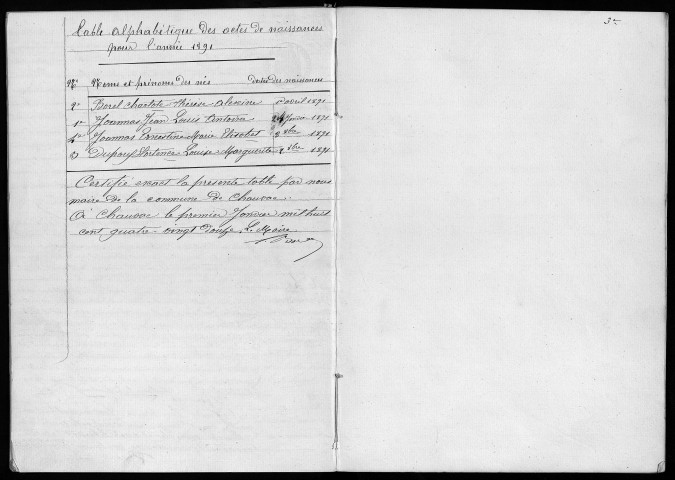 Table alphabétique des actes de naissances
pour l'année 1891
Nos Noms et prénoms des nés dates des naissances
2e Borel Charlote Thérèse Alexine 1er avril 1891
1er Joannas Jean Louis Antoine 24 Janvier 1891
4e Joannas Ernestine Marie Elisabet 1891
3 Dupouy Hortence Louise Marguerite 1891
Certifié exact la présente table par nous
maire de la commune de Chauvac.
A Chauvac le premier Janvier mil huit
cent quatre-vingt douze. Le Maire
3